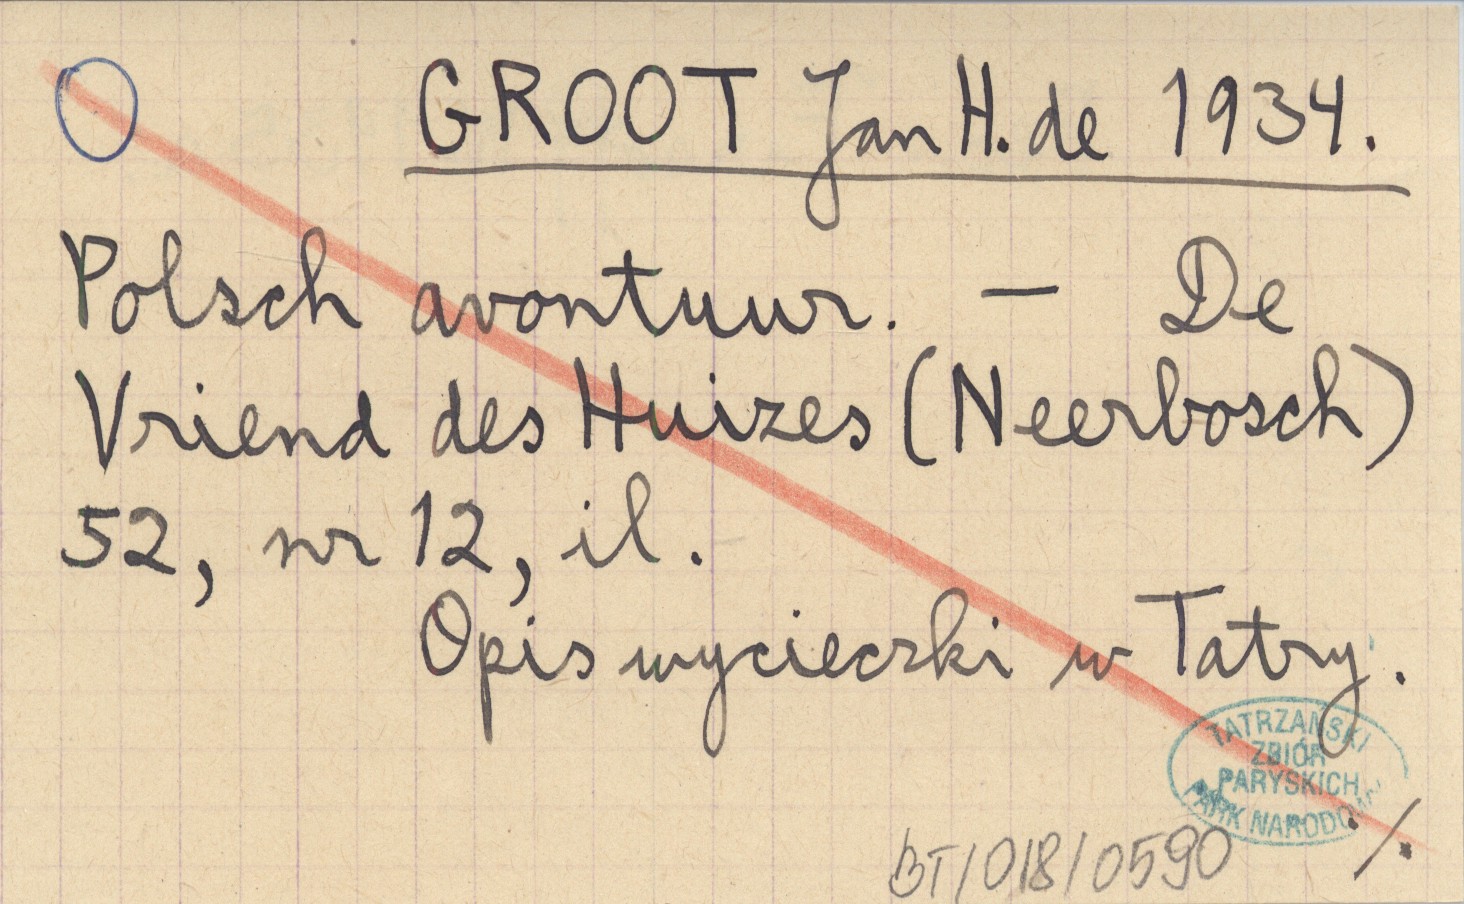 GROOT Jan H. de 1934.
Polsch avontuur. — De
Vriend des Huizes (Neerbosch)
52, nr 12, il.
Opis wycieczki w Tatry.
TATRZAŃSKI
ZBIÓR
PARYSKICH
PARK NARODOWY
BT/018/0590 ./.